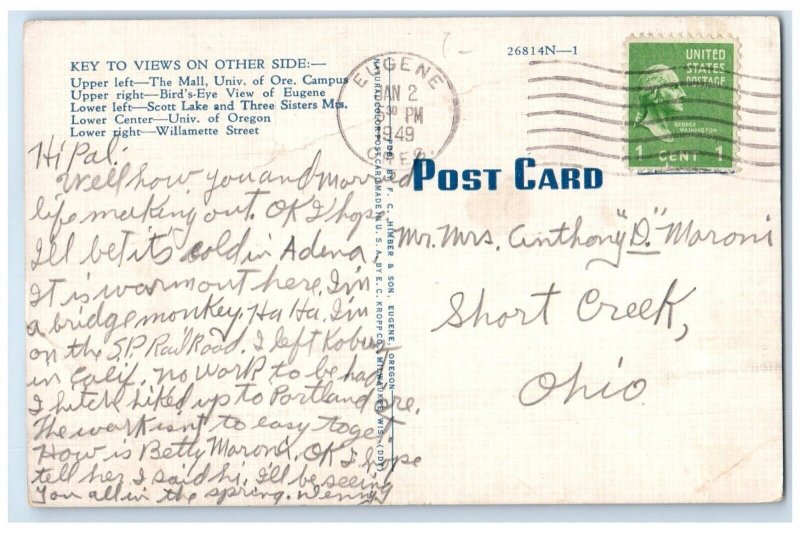 KEY TO VIEWS ON OTHER SIDE:—
Upper left—The Mall, Univ. of Ore. Campus
Upper right—Bird's-Eye View of Eugene
Lower left—Scott Lake and Three Sisters Mts.
Lower Center—Univ. of Oregon
Lower right—Willamette Street
26814N—1
EUGENE
JAN 2
30 PM
1949
OREG.
UNITED
STATES
POSTAGE
GEORGE
WASHINGTON
1 CENT 1
POST CARD
Hi Pal:
Well how you and married
life making out. OK I hop
I'll bet its cold in Adena
It is warm out here. I'm
a bridge monkey. Ha Ha. I'm
on the S.P. RailRoad. I left
in Calif. no work to be had
I hitch hiked up to Portland ore.
The work isn't to easy to get
How is Betty Maroni. OK I hope
tell her I said hi. I'll be seeing
you all in the spring. Denny
PUB. BY F. C. HIMBER & SON, EUGENE, OREGON
NATURAL COLOR POST CARD MADE IN U. S. A. BY E. C. KROPP CO., MILWAUKEE, WIS. (DDT)
Mr. Mrs. Anthony "D." Maroni
Short Creek,
Ohio